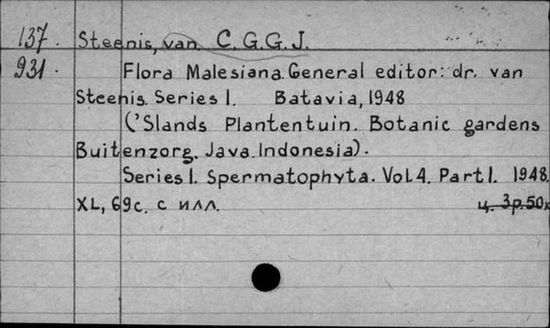 137. Steenis, van C.G.G.J.
931. Flora Malesiana. General editor: dr. van
Steenis. Series 1. Batavia, 1948
('Slands Plantentuin. Botanic gardens
Buitenzorg. Java. Indonesia).
Series 1. Spermatophyta. Vol. 4. Part 1. 1948.
XL, 69с. с илл. ц. 3р.50к